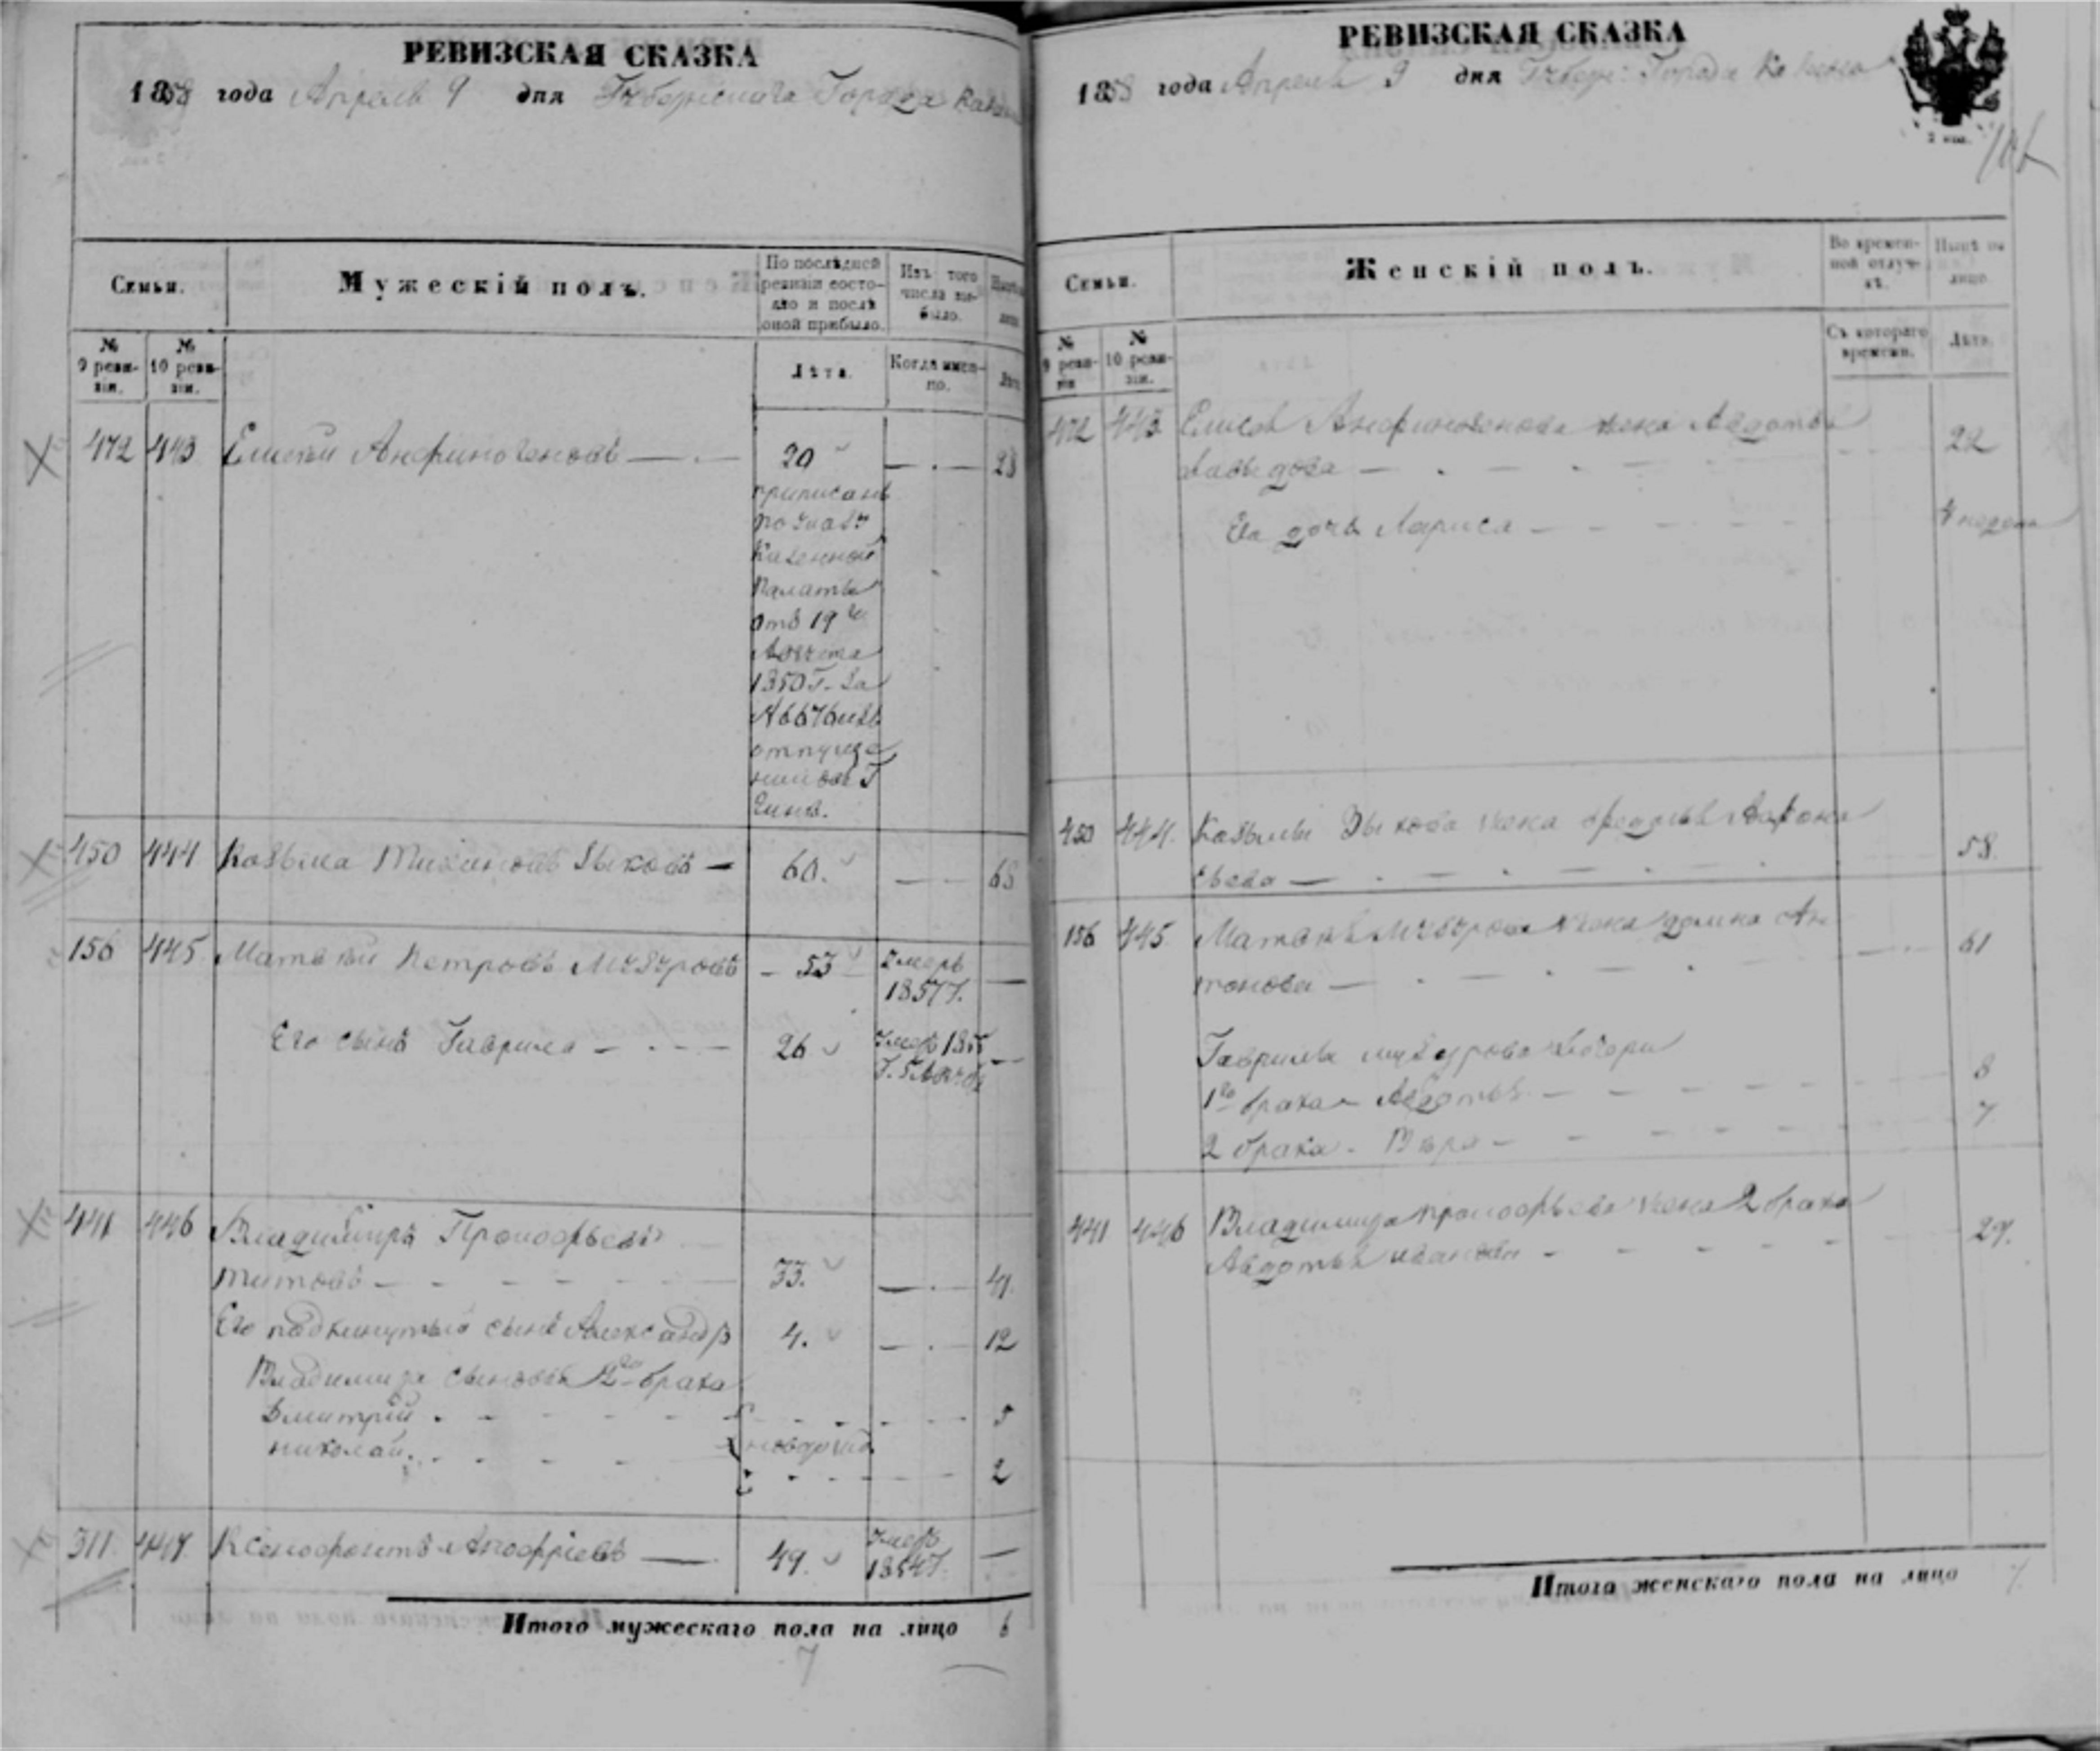 РЕВИЗСКАЯ СКАЗКА
1858 года Апреля 9 дня Губернскаго Города Казани
Семьи.
Мужескій полъ.
По послѣдней ревизіи состояло и послѣ оной прибыло.
Изъ того числа выбыло.
№ 9 ревизіи.
№ 10 ревизіи.
Лѣта.
Когда именно.
Лѣта
472 443 Елисей Анфиногеновъ — 20 — 28
приписанъ
по указу
Казенной
Палаты
отъ 19го
Августа
1850 Г. за
№ 6676 изъ
отпуще
450 444 Козьма Михайловъ Зыковъ — 60. — 68
156 445 Матвѣй Петровъ Музуровъ — 53 умеръ —
1857 Г.
Его сынъ Гаврила — 26 умеръ 1855 —
441 446 Владиміръ Прокофьевъ
Титовъ — 33. — 41.
Его подкинутый сынъ Александръ 4. — 12
Владимира сыновья 2го брака
Дмитрій 5
николай. новорожд.
2
311. 447. Ксенофонтъ Анофріевъ — 49. умеръ —
1854 Г.
Итого мужескаго пола на лицо 6
7
РЕВИЗСКАЯ СКАЗКА
1858 года Апреля 9 дня Губерн: Города Казани
2 коп.
Семьи.
Женскій полъ.
Во временной отлучкѣ.
Нынѣ на лицо
№ 9 ревизіи
№ 10 ревизіи.
Съ котораго времени.
Лѣта.
472 443 Елисея Анфиногенова жена Авдотья
Давыдова — 22
Ея дочь Лариса — недели
450 444. Козьмы Зыкова жена
58.
156 445. Матвѣя Музурова жена Домна Ан
тонова — 61
Гаврилы музурова дочери
1го брака Авдотья — 8
2 брака - Вѣра — 7.
441 446 Владимира Прокофьева жена 2 брака
Авдотья иванова — 29.
Итого женскаго пола на лицо 7.